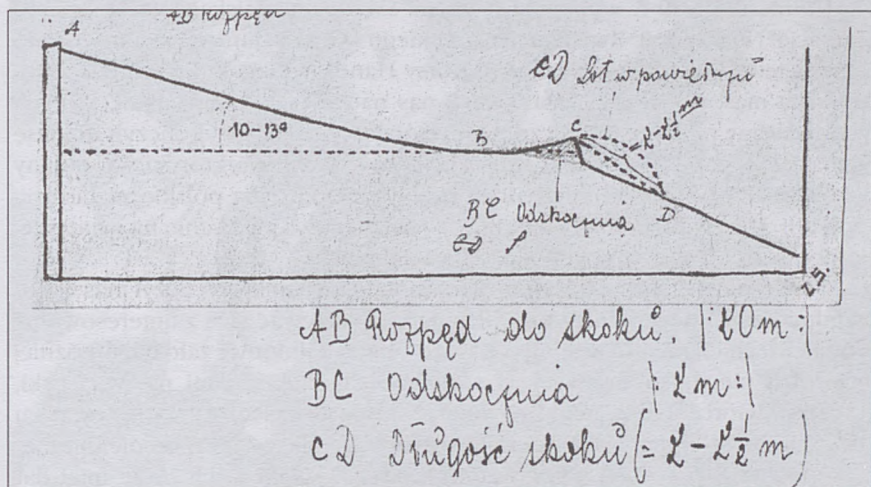 AB Rozpęd
A
CD Lot w powietrzu
10-13°
B
C
2-2½ m
D
BC Odskocznia
CD
Z.S.
AB Rozpęd do skoku. |:20m:|
BC Odskocznia |:2m:|
CD Długość skoku (= 2-2½ m)